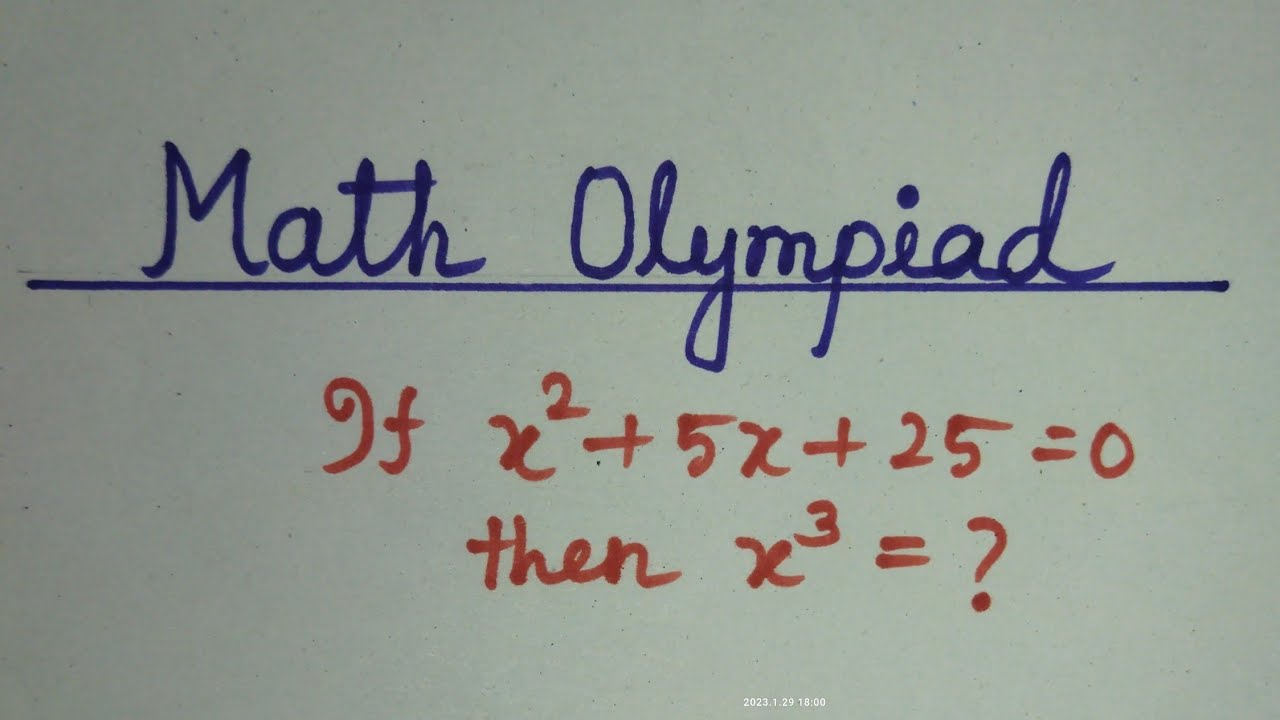 Math Olympiad
If x²+5x+25=0
then x³=?
2023.1.29 18:00